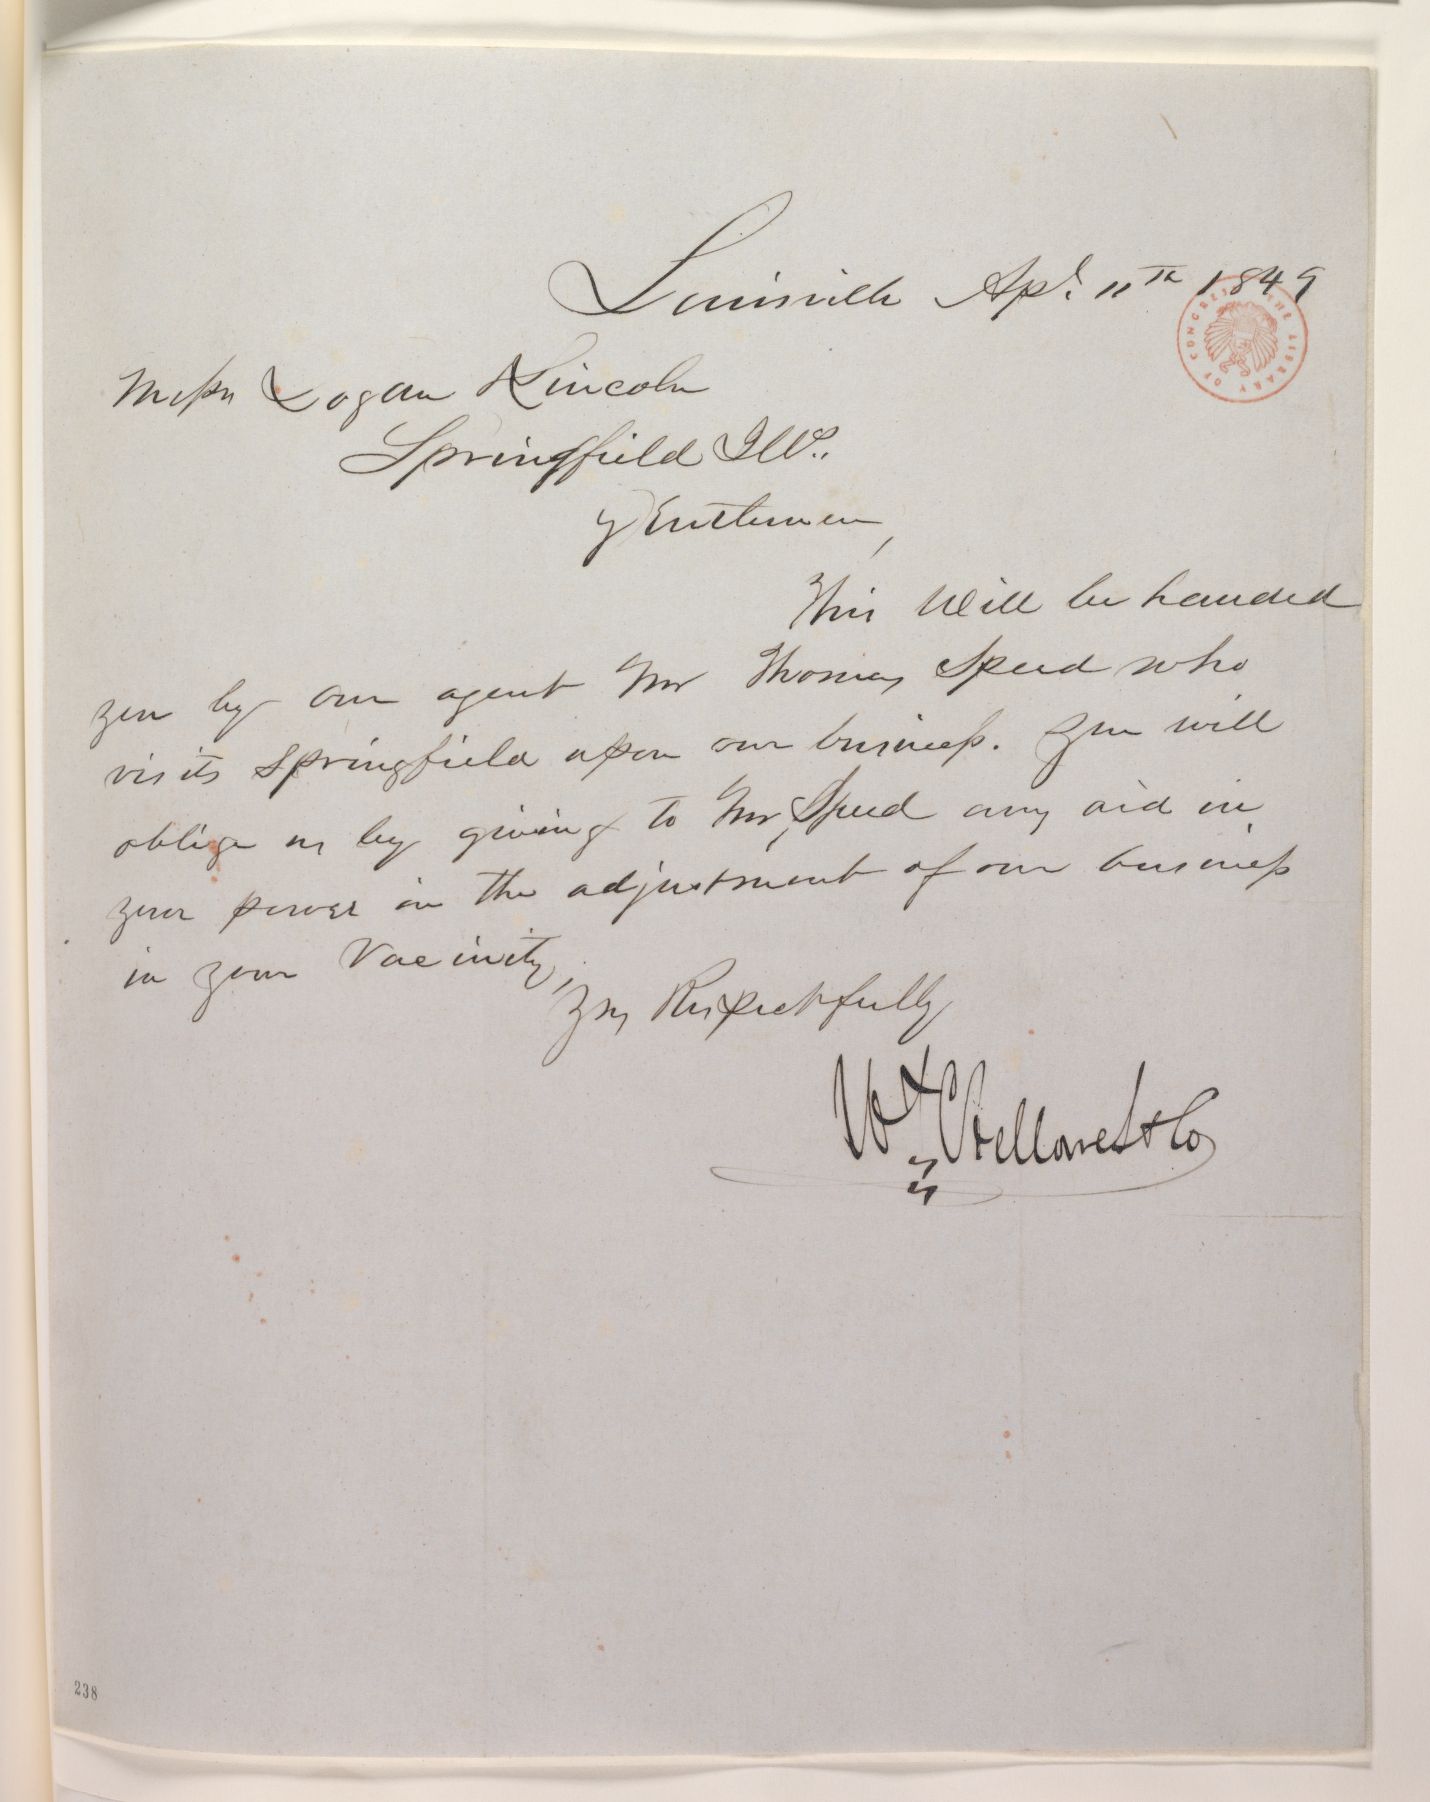 Louisville Apl. 11th 1849
THE LIBRARY OF CONGRESS
Messrs Logan Lincoln
Springfield Ills..
Gentlemen,
This Will be handed
you by our agent Mr Thomas Speed who
visits Springfield upon our business. You will
oblige us by giving to Mr, Speed any aid in
your power in the adjustment of our business
in your Vacinity,
Yrs Respectfully
Wm & Co
238